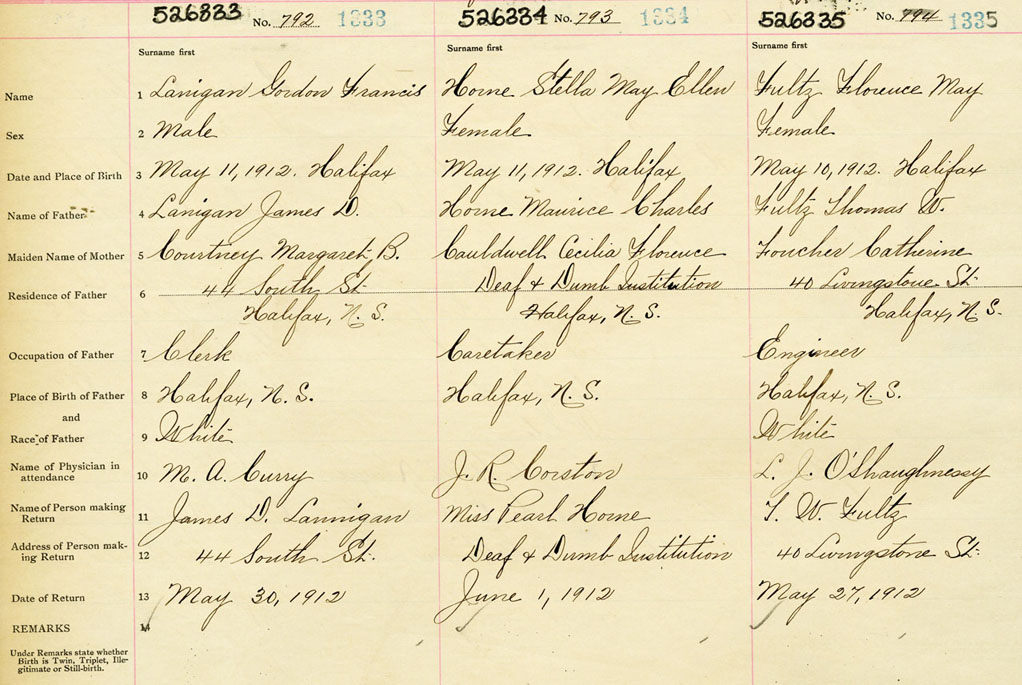 526833 No. 792 1333 526334 No. 793 1334 526335 No. 794 1335
Surname first Surname first Surname first
Name 1 Lanigan Gordon Francis Horne Stella May Ellen Fultz Florence May
Sex 2 Male Female Female
Date and Place of Birth 3 May 11, 1912. Halifax May 11, 1912. Halifax May 10, 1912. Halifax
Name of Father 4 Lanigan James D. Horne Maurice Charles Fultz Thomas W.
Maiden Name of Mother 5 Courtney Margaret B. Cauldwell Cecilia Florence Foucher Catherine
Residence of Father 6 44 South St. Deaf & Dumb Institution 40 Livingstone St.
Halifax, N.S. Halifax, N.S. Halifax, N.S.
Occupation of Father 7 Clerk Caretaker Engineer
Place of Birth of Father 8 Halifax, N.S. Halifax, N.S. Halifax, N.S.
and
Race of Father 9 White White
Name of Physician in attendance 10 M. A. Curry J. R. Corston L. J. O'Shaughnessy
Name of Person making Return 11 James D. Lannigan Miss Pearl Horne T. W. Fultz
Address of Person making Return 12 44 South St. Deaf & Dumb Institution 40 Livingstone St.
Date of Return 13 May 30, 1912 June 1, 1912 May 27, 1912
REMARKS 14
Under Remarks state whether
Birth is Twin, Triplet, Ille-
gitimate or Still-birth.